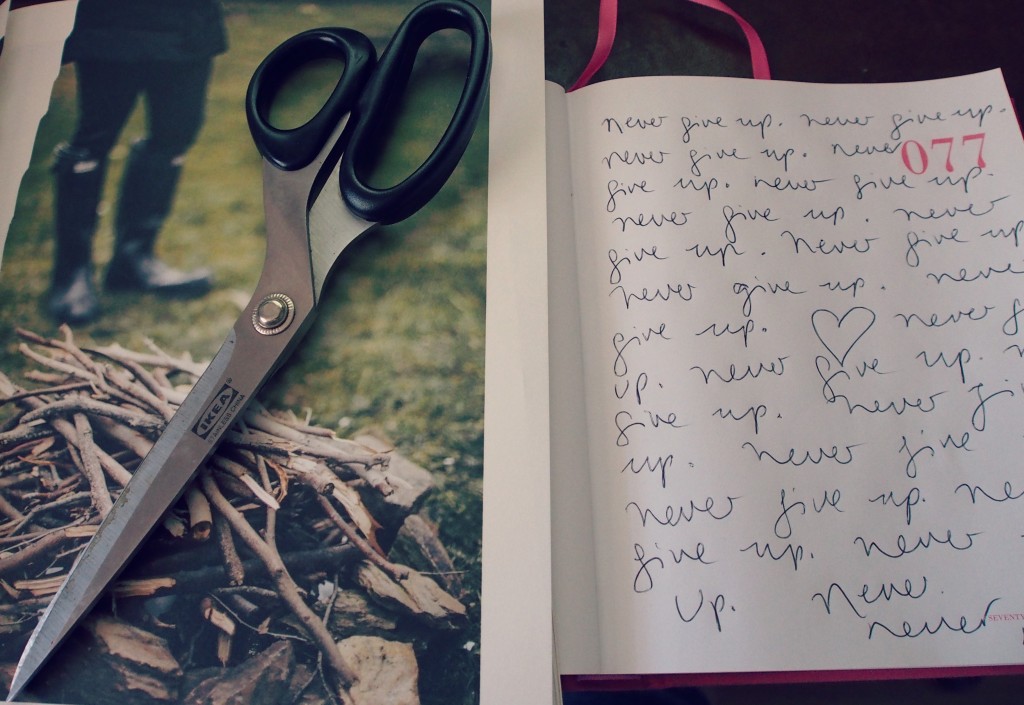 IKEA
never give up. never give up.
never give up. never
077
give up. never give up.
never give up. never
give up. Never give up
never give up. never
give up. never
up. never give up.
give up. never
up. never give
never give up.
give up. never
up. Never.
never